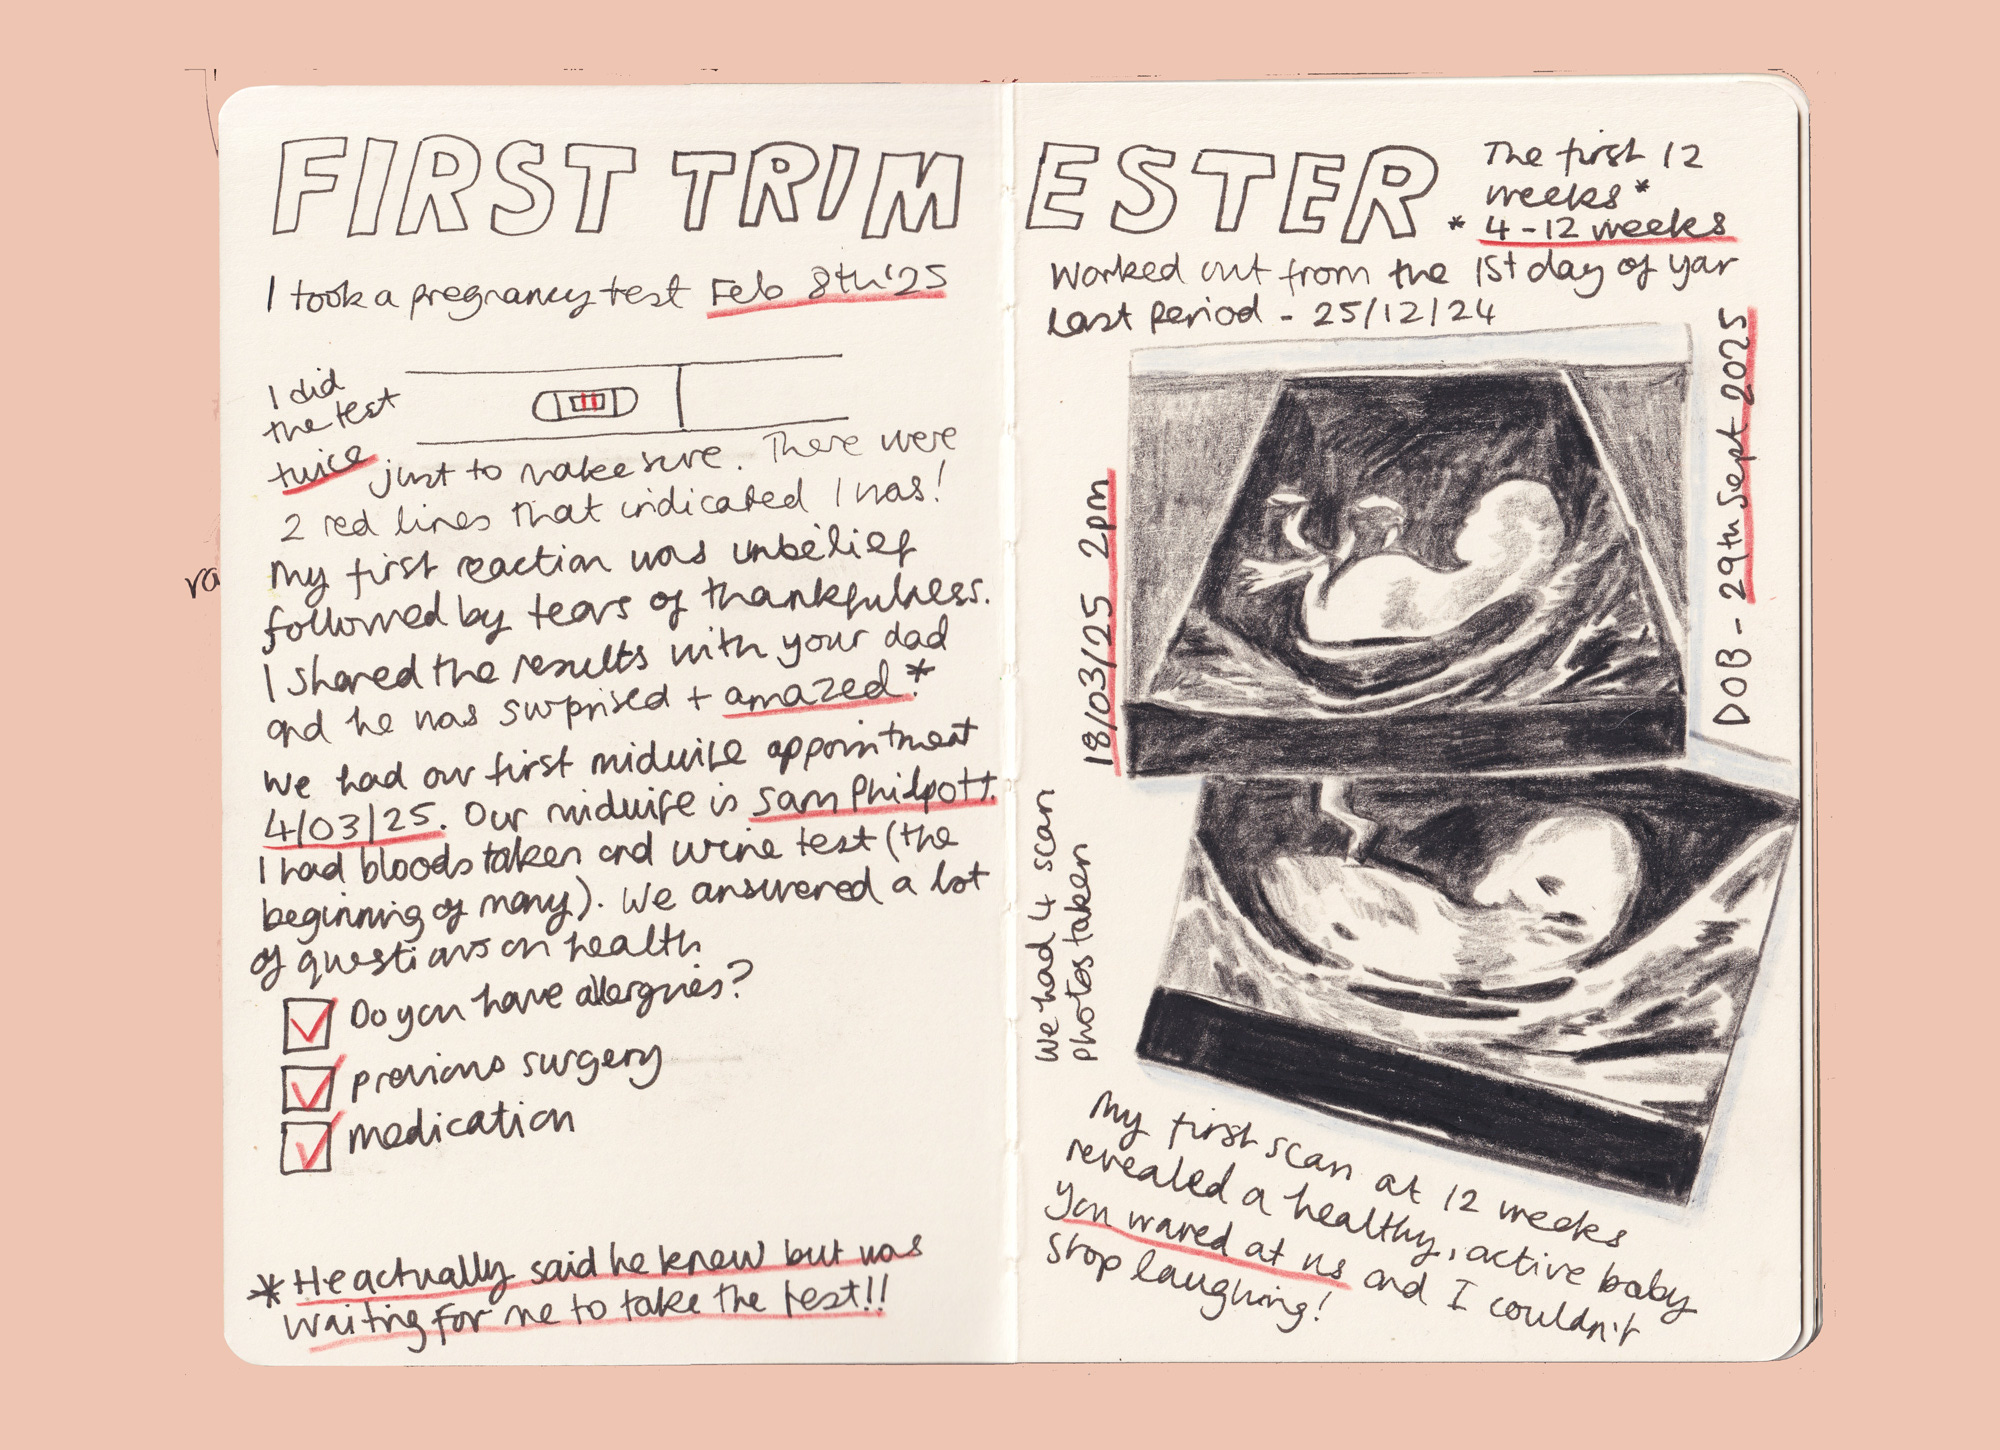 FIRST TRIMESTER
I took a pregnancy test Feb 8th '25
I did
the test
twice just to make sure. There were
2 red lines that indicated I was!
My first reaction was unbelief
followed by tears of thankfulness.
I shared the results with your dad
and he was surprised + amazed*
We had our first midwife appointment
4/03/25. Our midwife is Sam Philpott.
I had bloods taken and urine test (the
beginning of many). We answered a lot
of questions on health
Do you have allergies?
previous surgery
medication
* He actually said he knew but was
waiting for me to take the test!!
The first 12
weeks*
* 4-12 weeks
Worked out from the 1st day of your
last period - 25/12/24
18/03/25 2pm
DOB - 29th Sept 2025
We had 4 scan
photos taken
My first scan at 12 weeks
revealed a healthy, active baby
you waved at us and I couldn't
stop laughing!